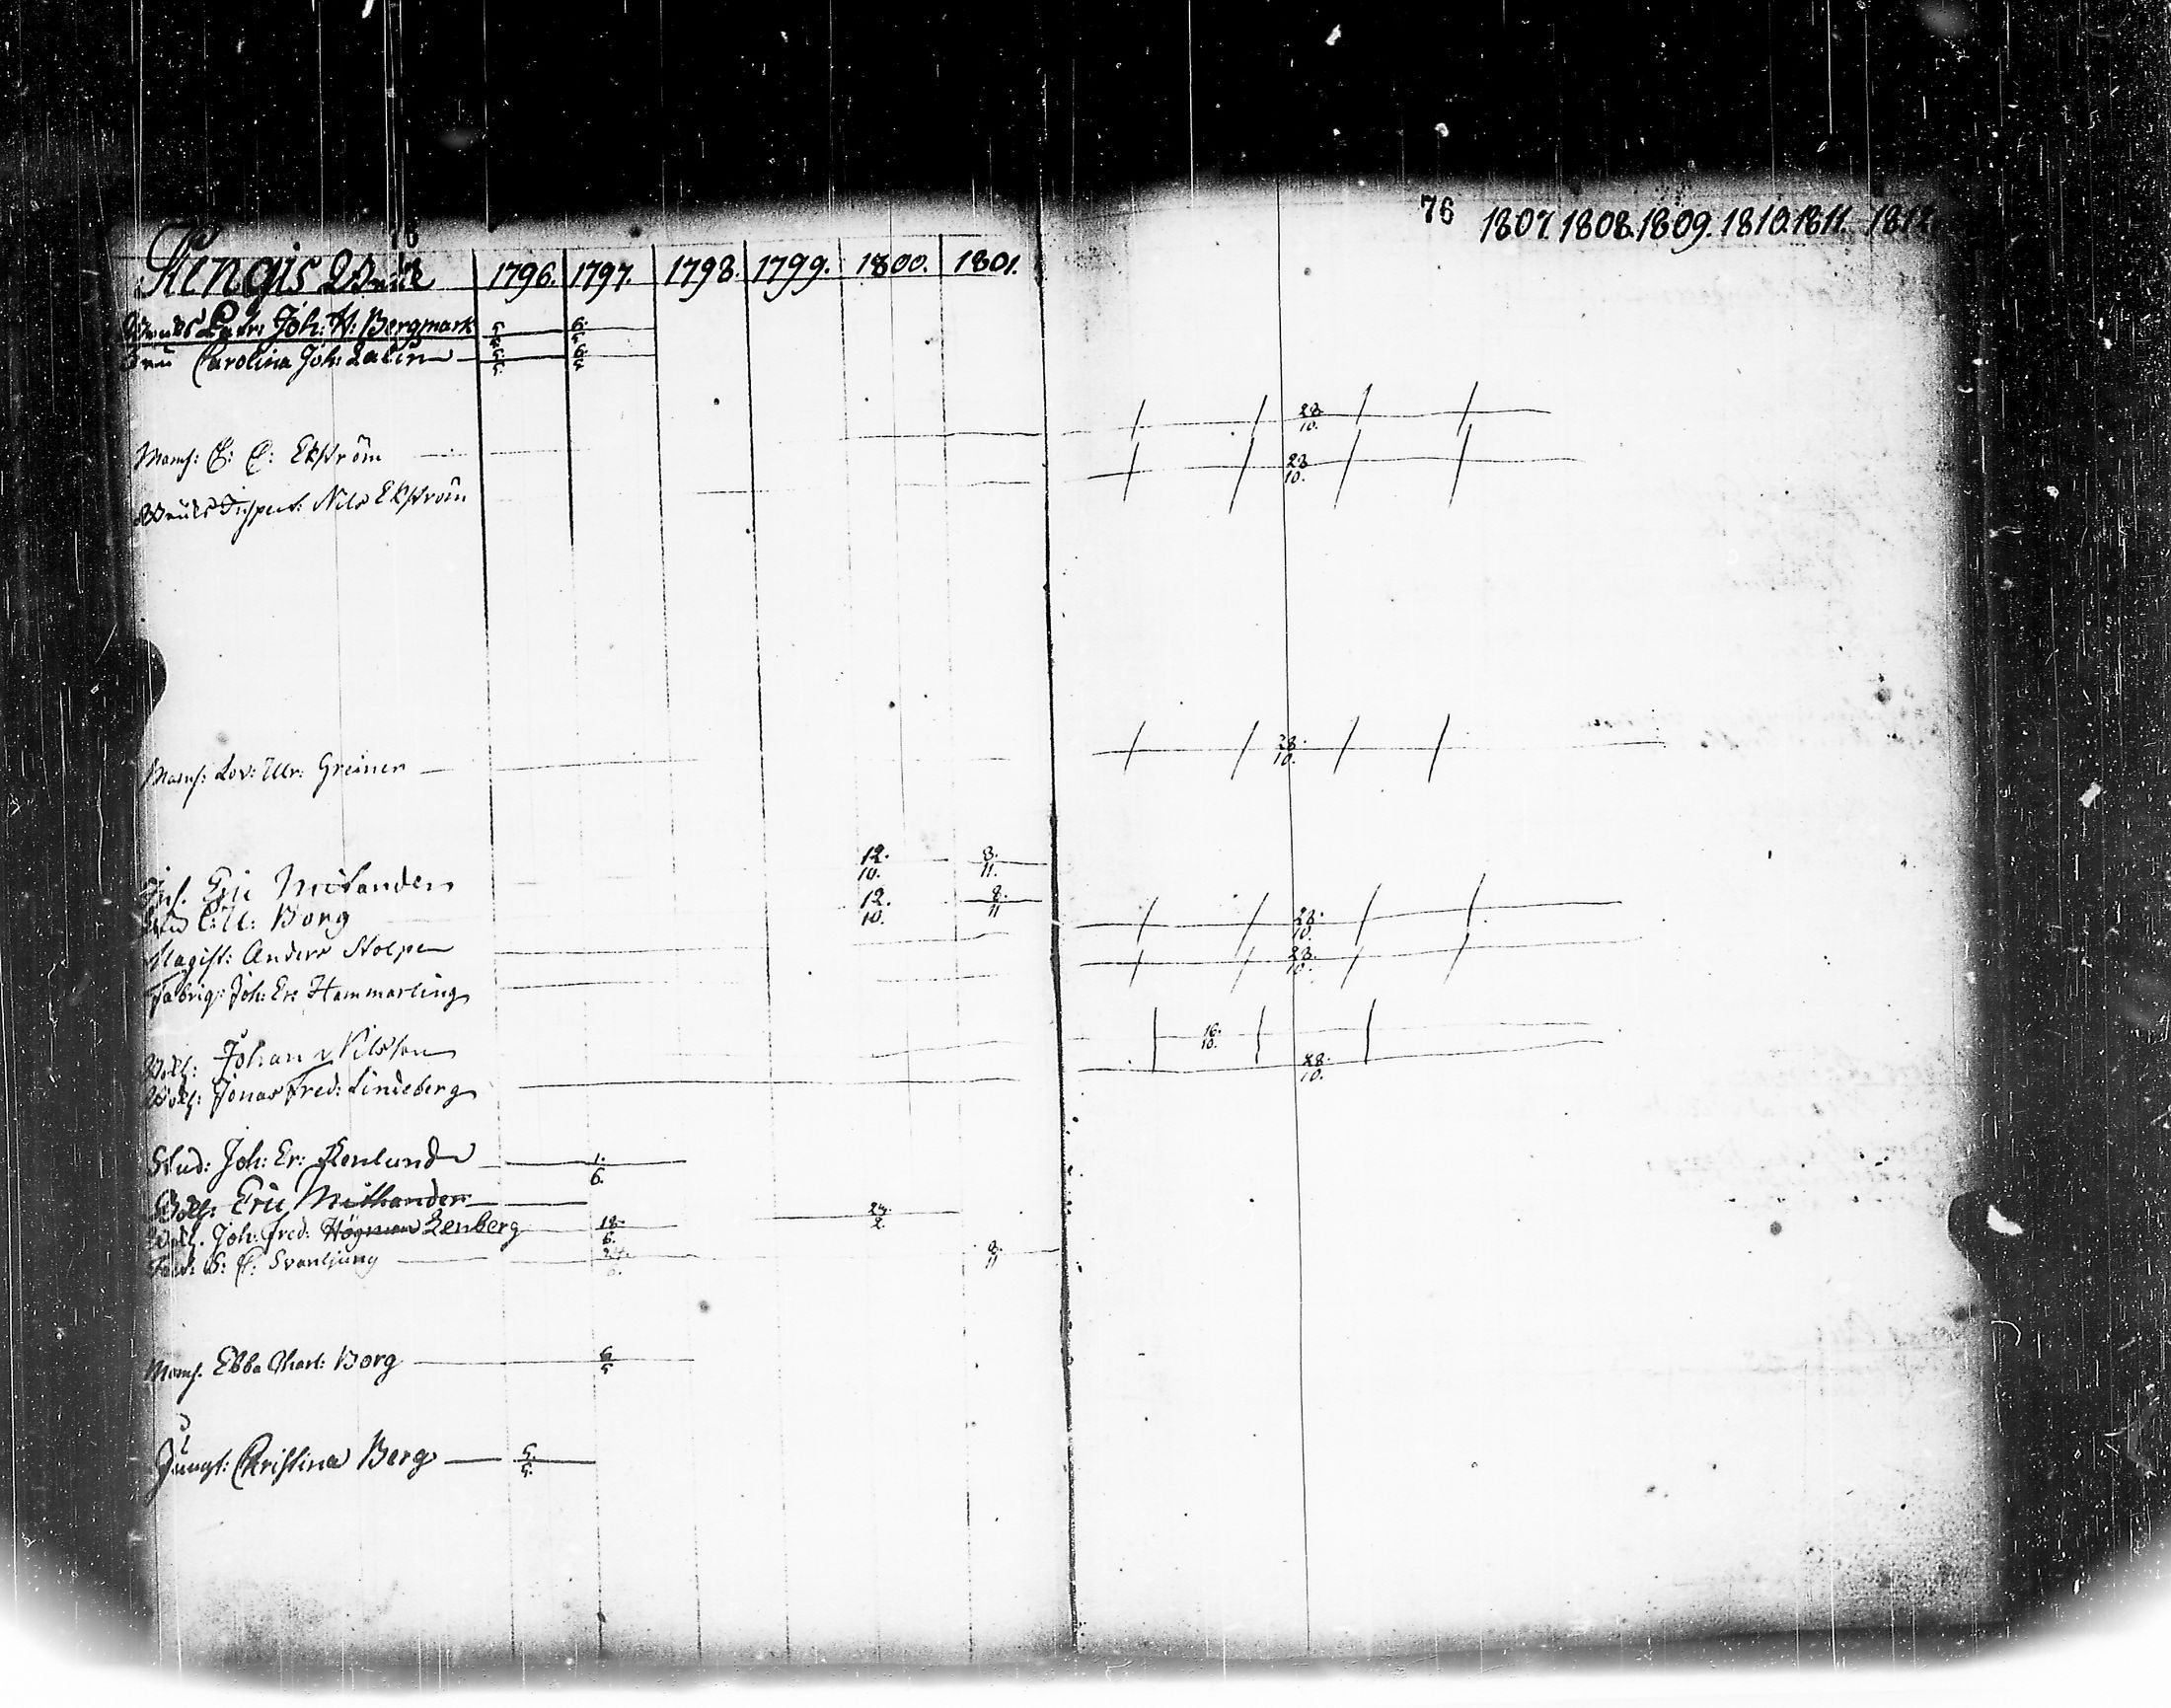 76
Kengis Bruk 1796. 1797. 1798. 1799. 1800. 1801.
Bruks Patr: Joh: H: Bergmark 5/5 6/5
Fru Carolina Joh: Zalin 5/5 6/5
Mams: C: C: Ekström
Bruks Inspect: Nils Ekström
Mams: Lov: Ulr: Greiner
Ins. Eric Mithander 12./10. 8./11.
Fru C: U: Borg 12./10. 8./11
Magist: Anders Stolpe
Fabriq: Joh: Er: Hammarling
Bokh: Johan Nilsson
Bokh: Jonas Fred: Lindeberg
Stud: Joh: Er: Renlund 1./6.
Bokh: Eric Mithander
Bokh. Joh: Fred: Högman Zenberg 18./6. 24/2.
C: Svanljung 24./6. 8./11
Mams. Ebba Charl: Borg 6/5
Jungf: Christina Berg 5./5.
76 1807. 1808. 1809. 1810. 1811. 1812.
28/10.
28/10.
28./10.
28./10.
28./10.
16./10.
28./10.